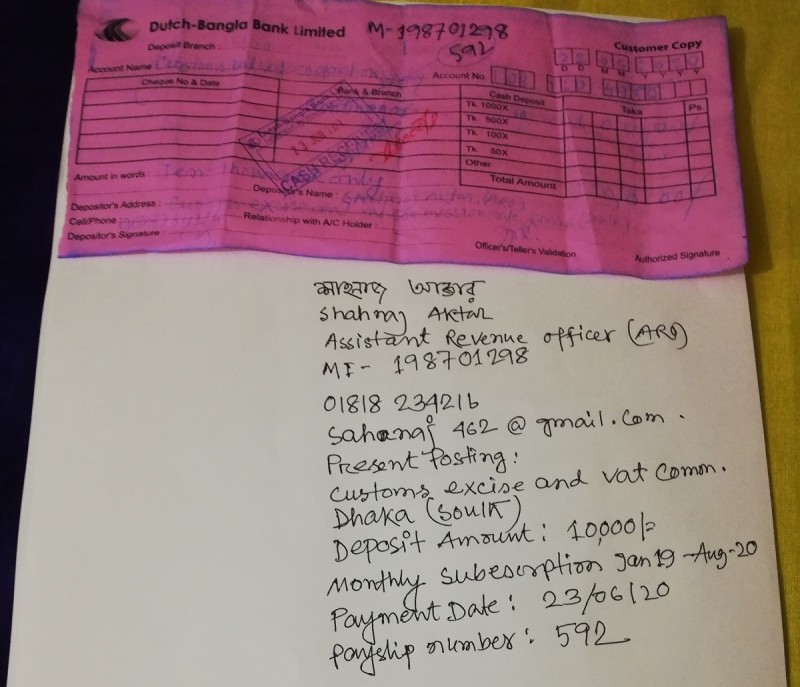 Dutch-Bangla Bank Limited
M-198701298
592
Customer Copy
Deposit Branch :
Account Name
Account No.
D D M M Y Y Y Y
Cheque No & Date
Bank & Branch
Cash Deposit
Taka
Ps.
Tk. 1000X
Tk. 500X
Tk. 100X
Tk. 50X
Other
Total Amount
CASH RECEIVED
Amount in words : Ten only
Depositor's Name :
Depositor's Address :
Cell/Phone :
Relationship with A/C Holder :
Depositor's Signature :
Officer's/Teller's Validation
Authorized Signature
শাহনাজ আক্তার
Shahnaj Aktar
Assistant Revenue officer (ARO)
MI- 198701298
01818 234216
Sahanaj 462@gmail.com.
Present Posting:
Customs, excise and vat comm.
Dhaka (South)
Deposit Amount: 10,000/=
Monthly Subescrption Jan 19 -Aug-20
Payment Date: 23/06/20
payslip number: 592